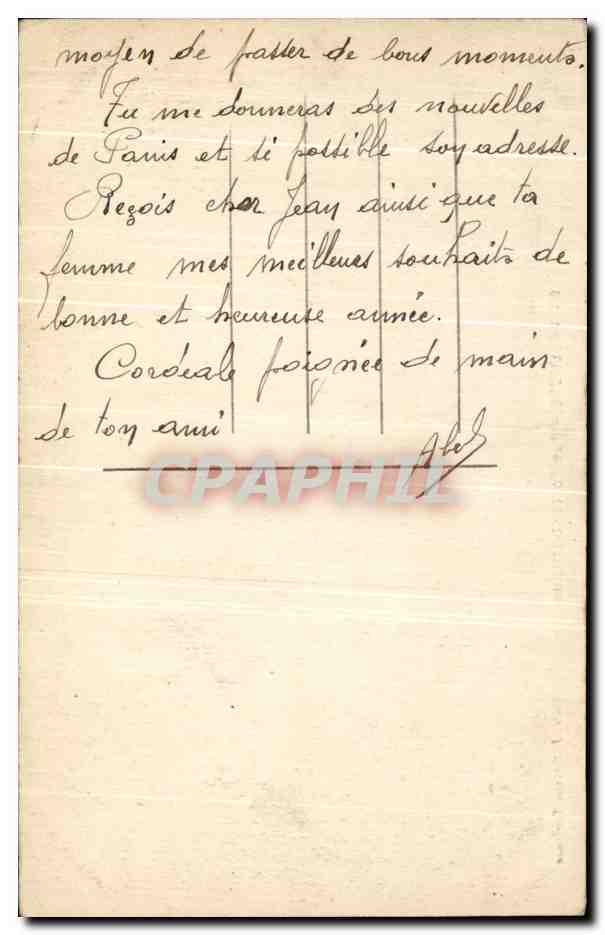 moyen de passer de bons moments.
Tu me donneras des nouvelles
de Paris et si possible son adresse.
Reçois cher Jean ainsi que ta
femme mes meilleurs souhaits de
bonne et heureuse année.
Cordéale poignée de main
de ton ami
CPAPHIL